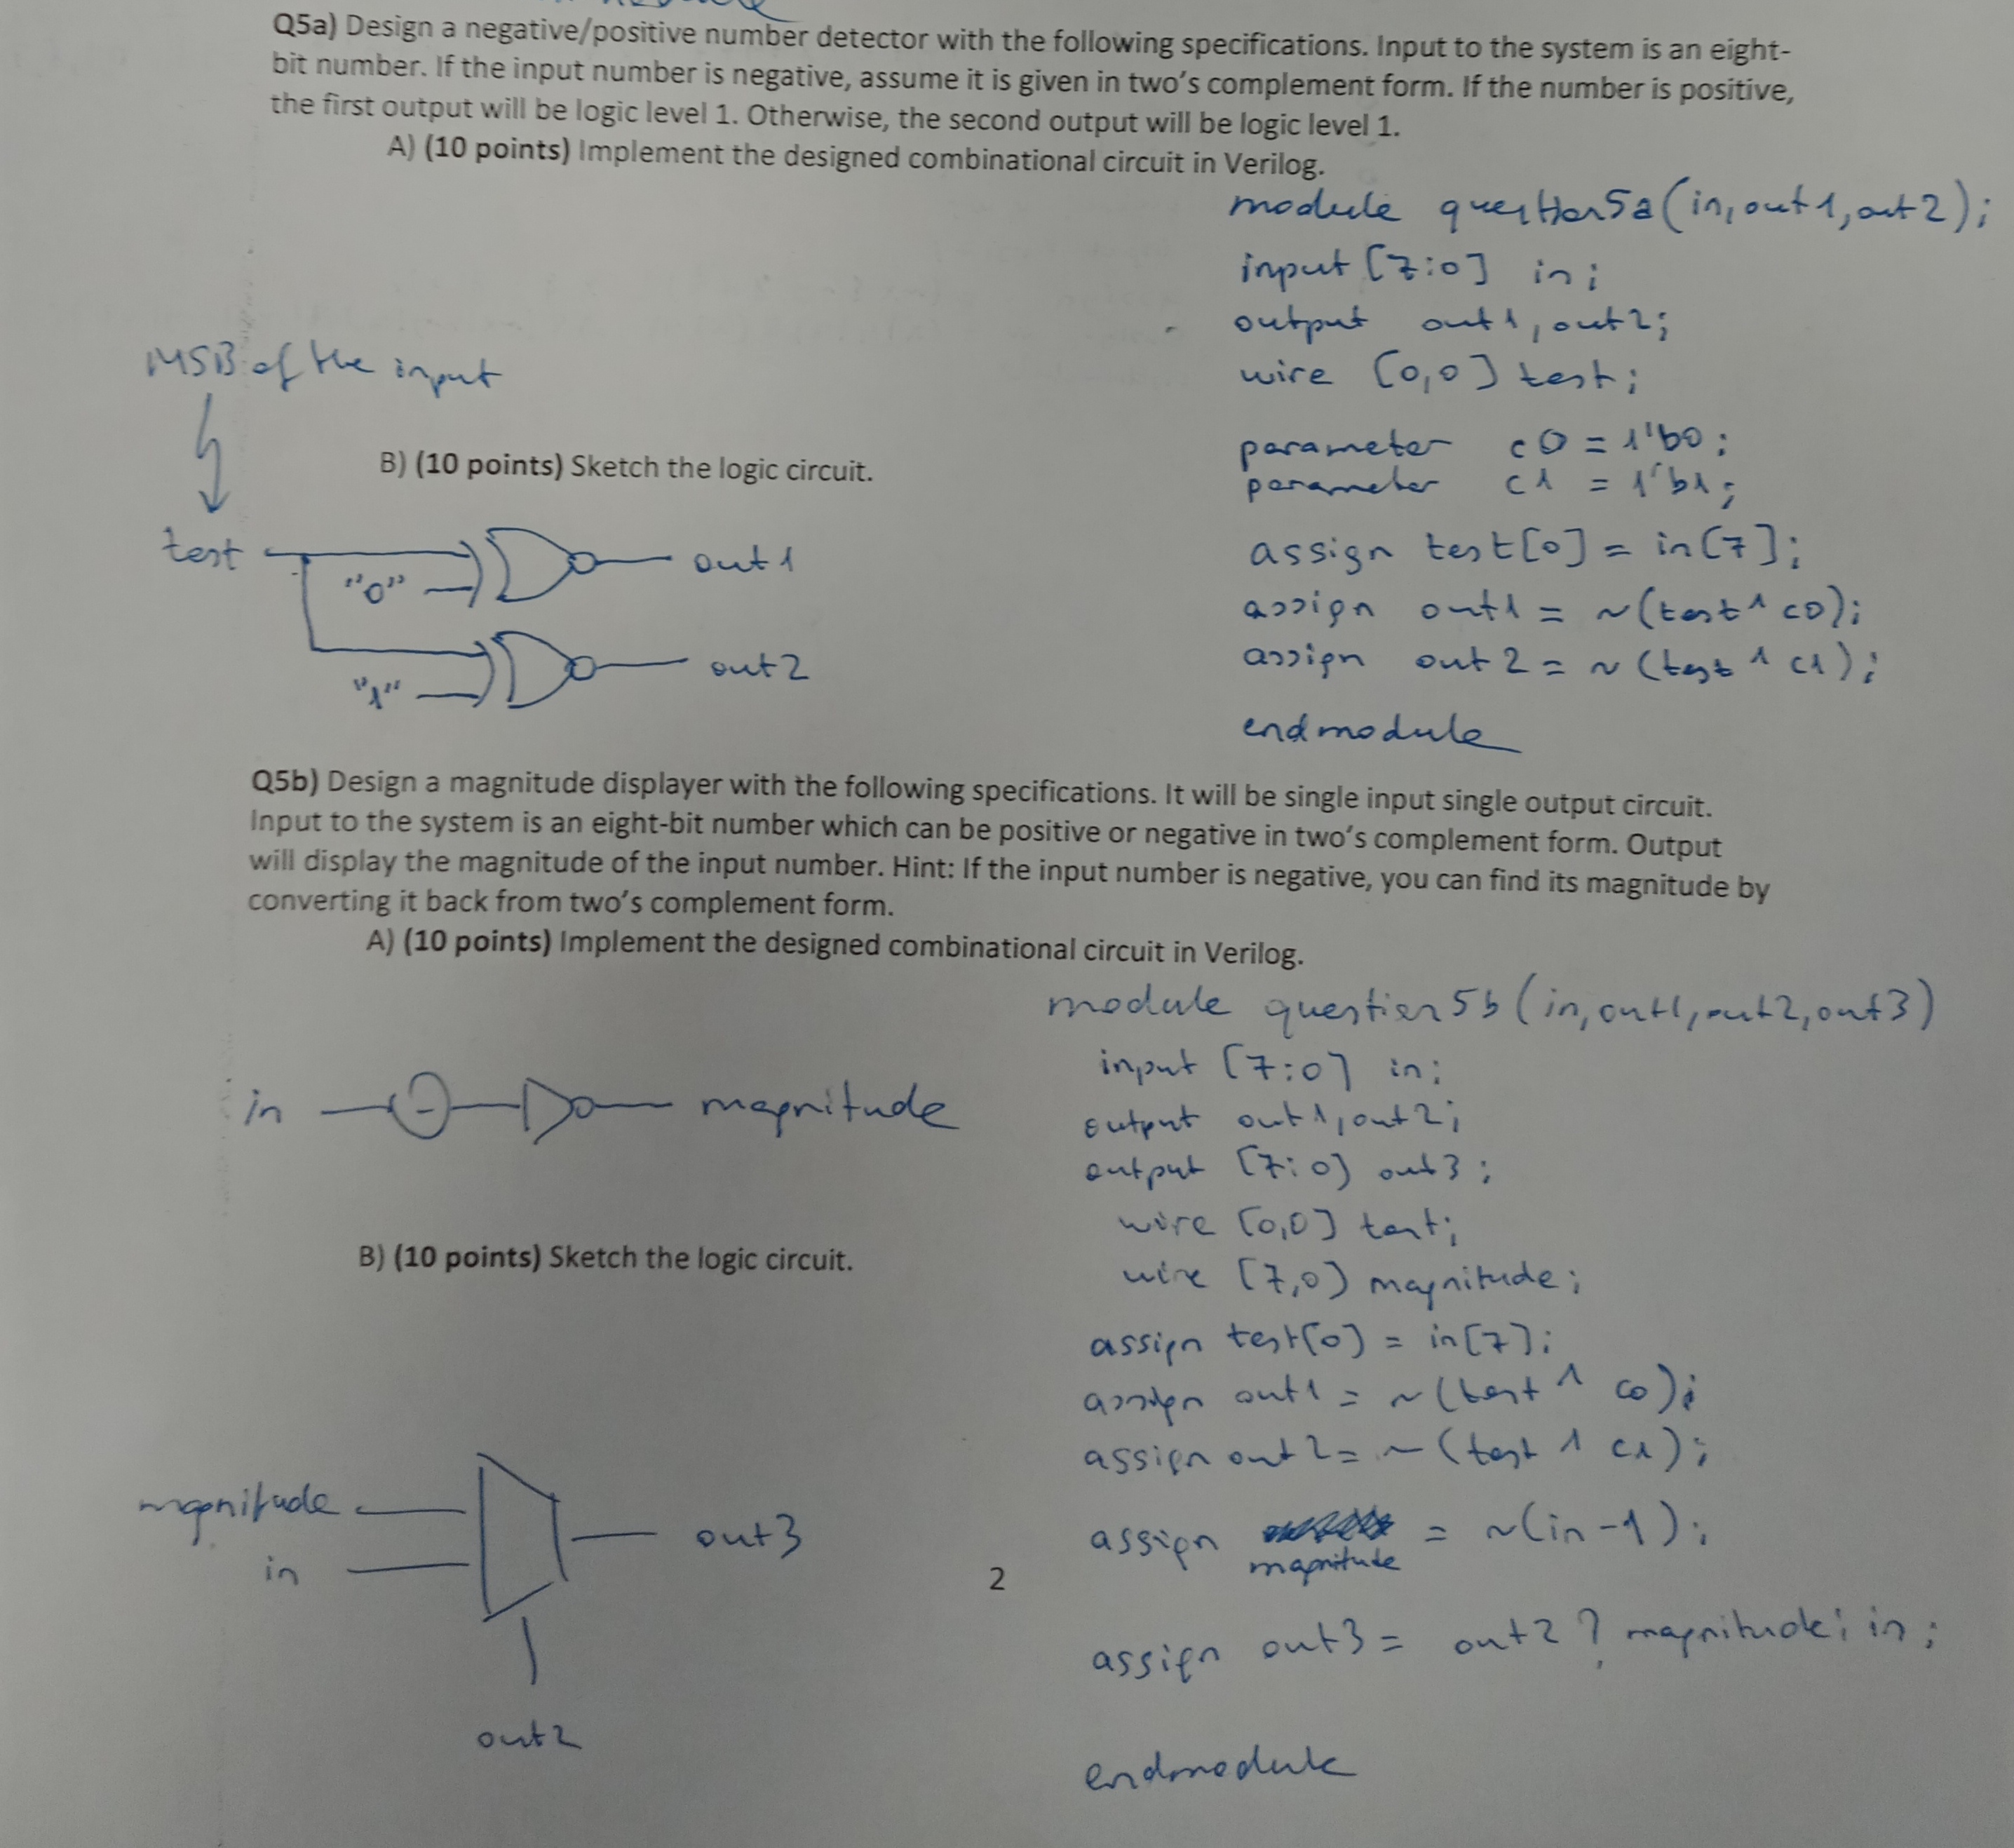 Q5a) Design a negative/positive number detector with the following specifications. Input to the system is an eight-
bit number. If the input number is negative, assume it is given in two's complement form. If the number is positive,
the first output will be logic level 1. Otherwise, the second output will be logic level 1.
A) (10 points) Implement the designed combinational circuit in Verilog.
module question5a(in,out1,out2);
input [7:0] in;
output out1,out2;
wire [0,0] test;
parameter c0 = 1'b0;
parameter c1 = 1'b1;
assign test[0] = in[7];
assign out1 = ~(test ^ c0);
assign out2 = ~(test ^ c1);
endmodule
MSB of the input
B) (10 points) Sketch the logic circuit.
test
"0"
out1
"1"
out2
Q5b) Design a magnitude displayer with the following specifications. It will be single input single output circuit.
Input to the system is an eight-bit number which can be positive or negative in two's complement form. Output
will display the magnitude of the input number. Hint: If the input number is negative, you can find its magnitude by
converting it back from two's complement form.
A) (10 points) Implement the designed combinational circuit in Verilog.
module question5b(in,out1,out2,out3)
input [7:0] in;
output out1,out2;
output [7:0] out3;
wire [0,0] test;
wire [7,0] magnitude;
assign test[0] = in[7];
assign out1 = ~(test ^ c0);
assign out2 = ~(test ^ c1);
assign magnitude = ~(in-1);
assign out3 = out2 ? magnitude: in;
endmodule
in - magnitude
B) (10 points) Sketch the logic circuit.
magnitude
in
out3
out2
2